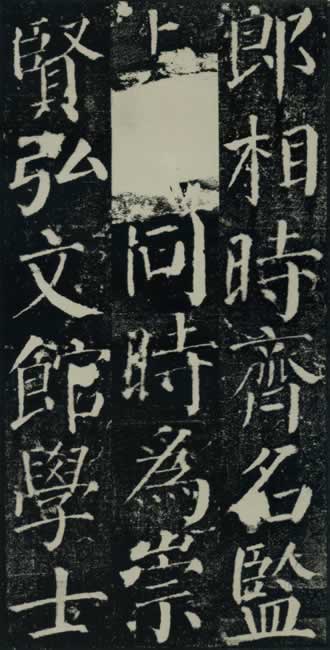 郎相時齊名監
同時爲崇
賢弘文館學士